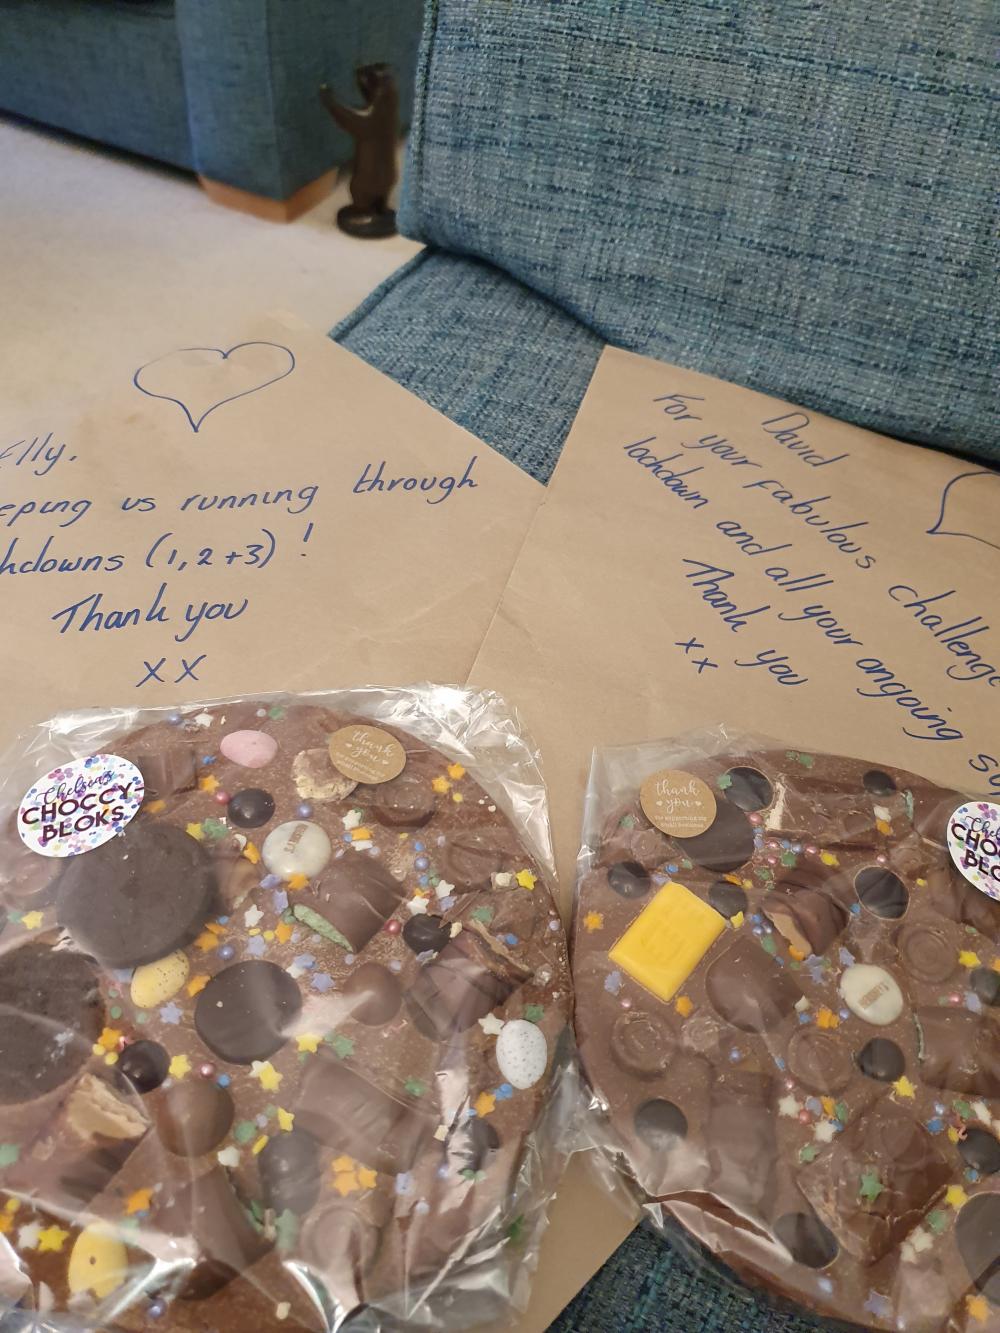 Elly.
eping us running through
hdowns (1,2+3)!
Thank you
xx
David
For your fabulous challenge
lockdown and all your ongoing su
Thank you
xx
Chelsea's
CHOCCY-
BLOKS
thank
you
thank
you
Che
CHOC
BLO